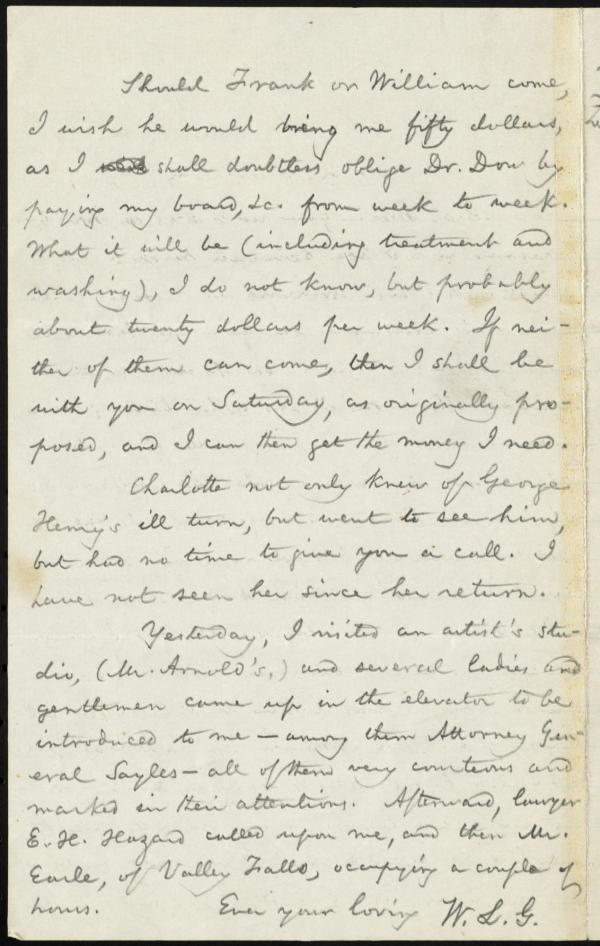 Should Frank or William come,
I wish he would bring me fifty dollars,
as I shall doubtless oblige Dr. Dow by
paying my board, &c. from week to week.
What it will be (including treatment and
washing), I do not know, but probably
about twenty dollars per week. If nei-
ther of them can come, then I shall be
with you on Saturday, as originally pro-
posed, and I can then get the money I need.
Charlotte not only knew of George
Henry's ill turn, but went to see him,
but had no time to give you a call. I
have not seen her since her return.
Yesterday, I visited an artist's stu-
dio, (Mr. Arnold's,) and several ladies and
gentlemen came up in the elevator to be
introduced to me — among them Attorney Gen-
eral Sayles — all of them very courteous and
marked in their attentions. Afterward, lawyer
E. H. Hazard called upon me, and then Mr.
Earle, of Valley Falls, occupying a couple of
hours. Ever your loving W. L. G.